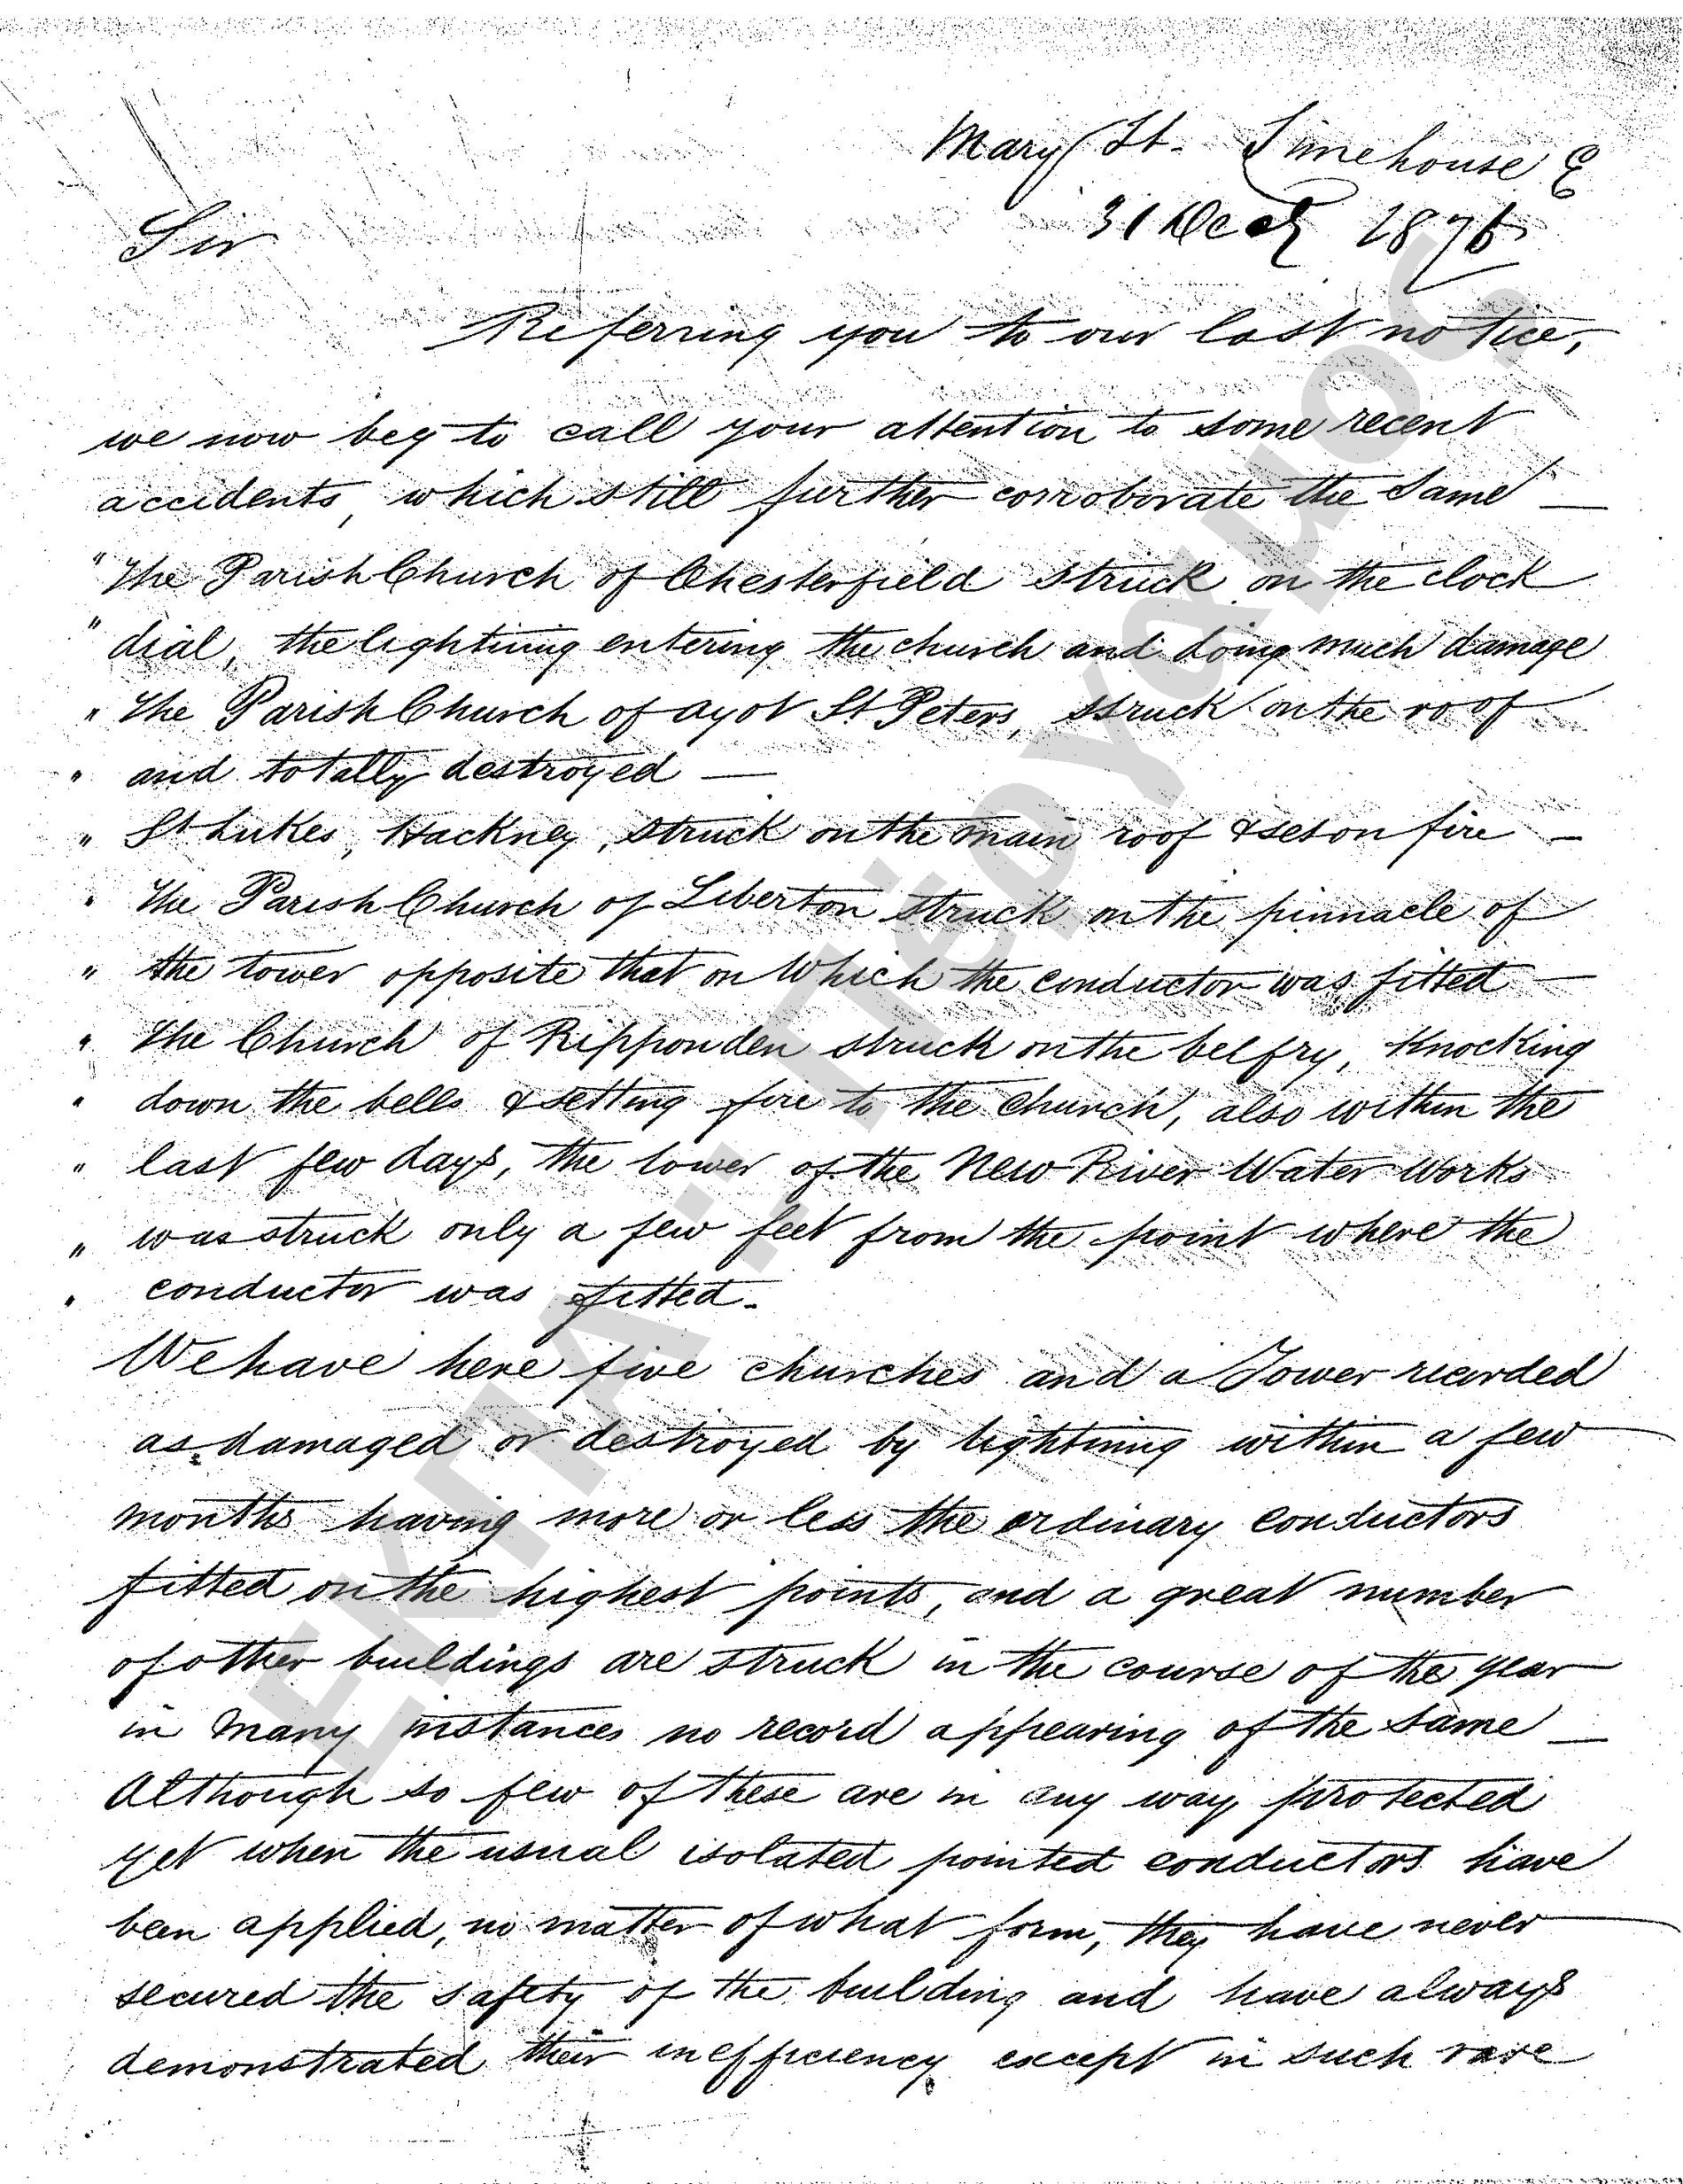 Mary St. Limehouse E
31 Decr 1876
Sir
Referring you to our last notice,
we now beg to call your attention to some recent
accidents, which still further corroborate the same —
"The Parish Church of Chesterfield struck on the clock
" dial, the lightning entering the church and doing much damage
" The Parish Church of Ayot St Peters, struck on the roof
" and totally destroyed —
" St Lukes, Hackney, struck on the main roof & set on fire —
" The Parish Church of Liberton struck on the pinnacle of
" the tower opposite that on which the conductor was fitted —
" The Church of Ripponden struck on the belfry, knocking
" down the bells & setting fire to the church, also within the
" last few days, the tower of the New River Water Works
" was struck only a few feet from the point where the
" conductor was fitted.
We have here five churches and a Tower recorded
as damaged or destroyed by lightning within a few
months having more or less the ordinary conductors
fitted on the highest points, and a great number
of other buildings are struck in the course of the year
in many instances no record appearing of the same —
Although so few of these are in any way protected
yet when the usual isolated pointed conductors have
been applied, no matter of what form, they have never
secured the safety of the building and have always
demonstrated their inefficiency except in such rare